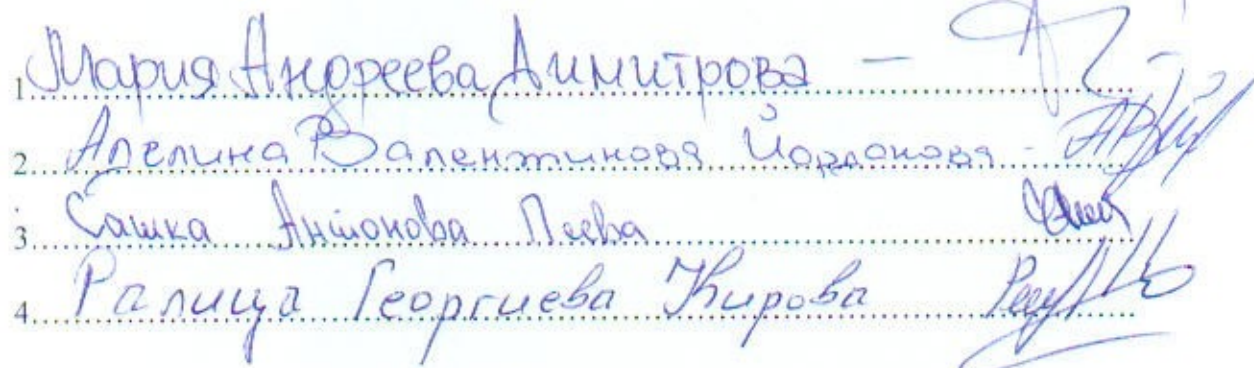 1. Мария Андреева Димитрова –
2. Аделина Валентинова Йорданова -
3. Сашка Антонова Пеева
4. Ралица Георгиева Кирова